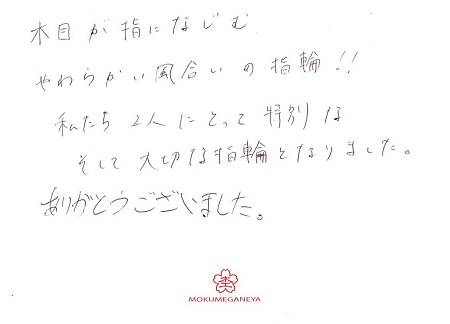 木目が指になじむ
やわらかい風合いの指輪!!
私たち2人にとって特別な
そして大切な指輪となりました。
ありがとうございました。
MOKUMEGANEYA